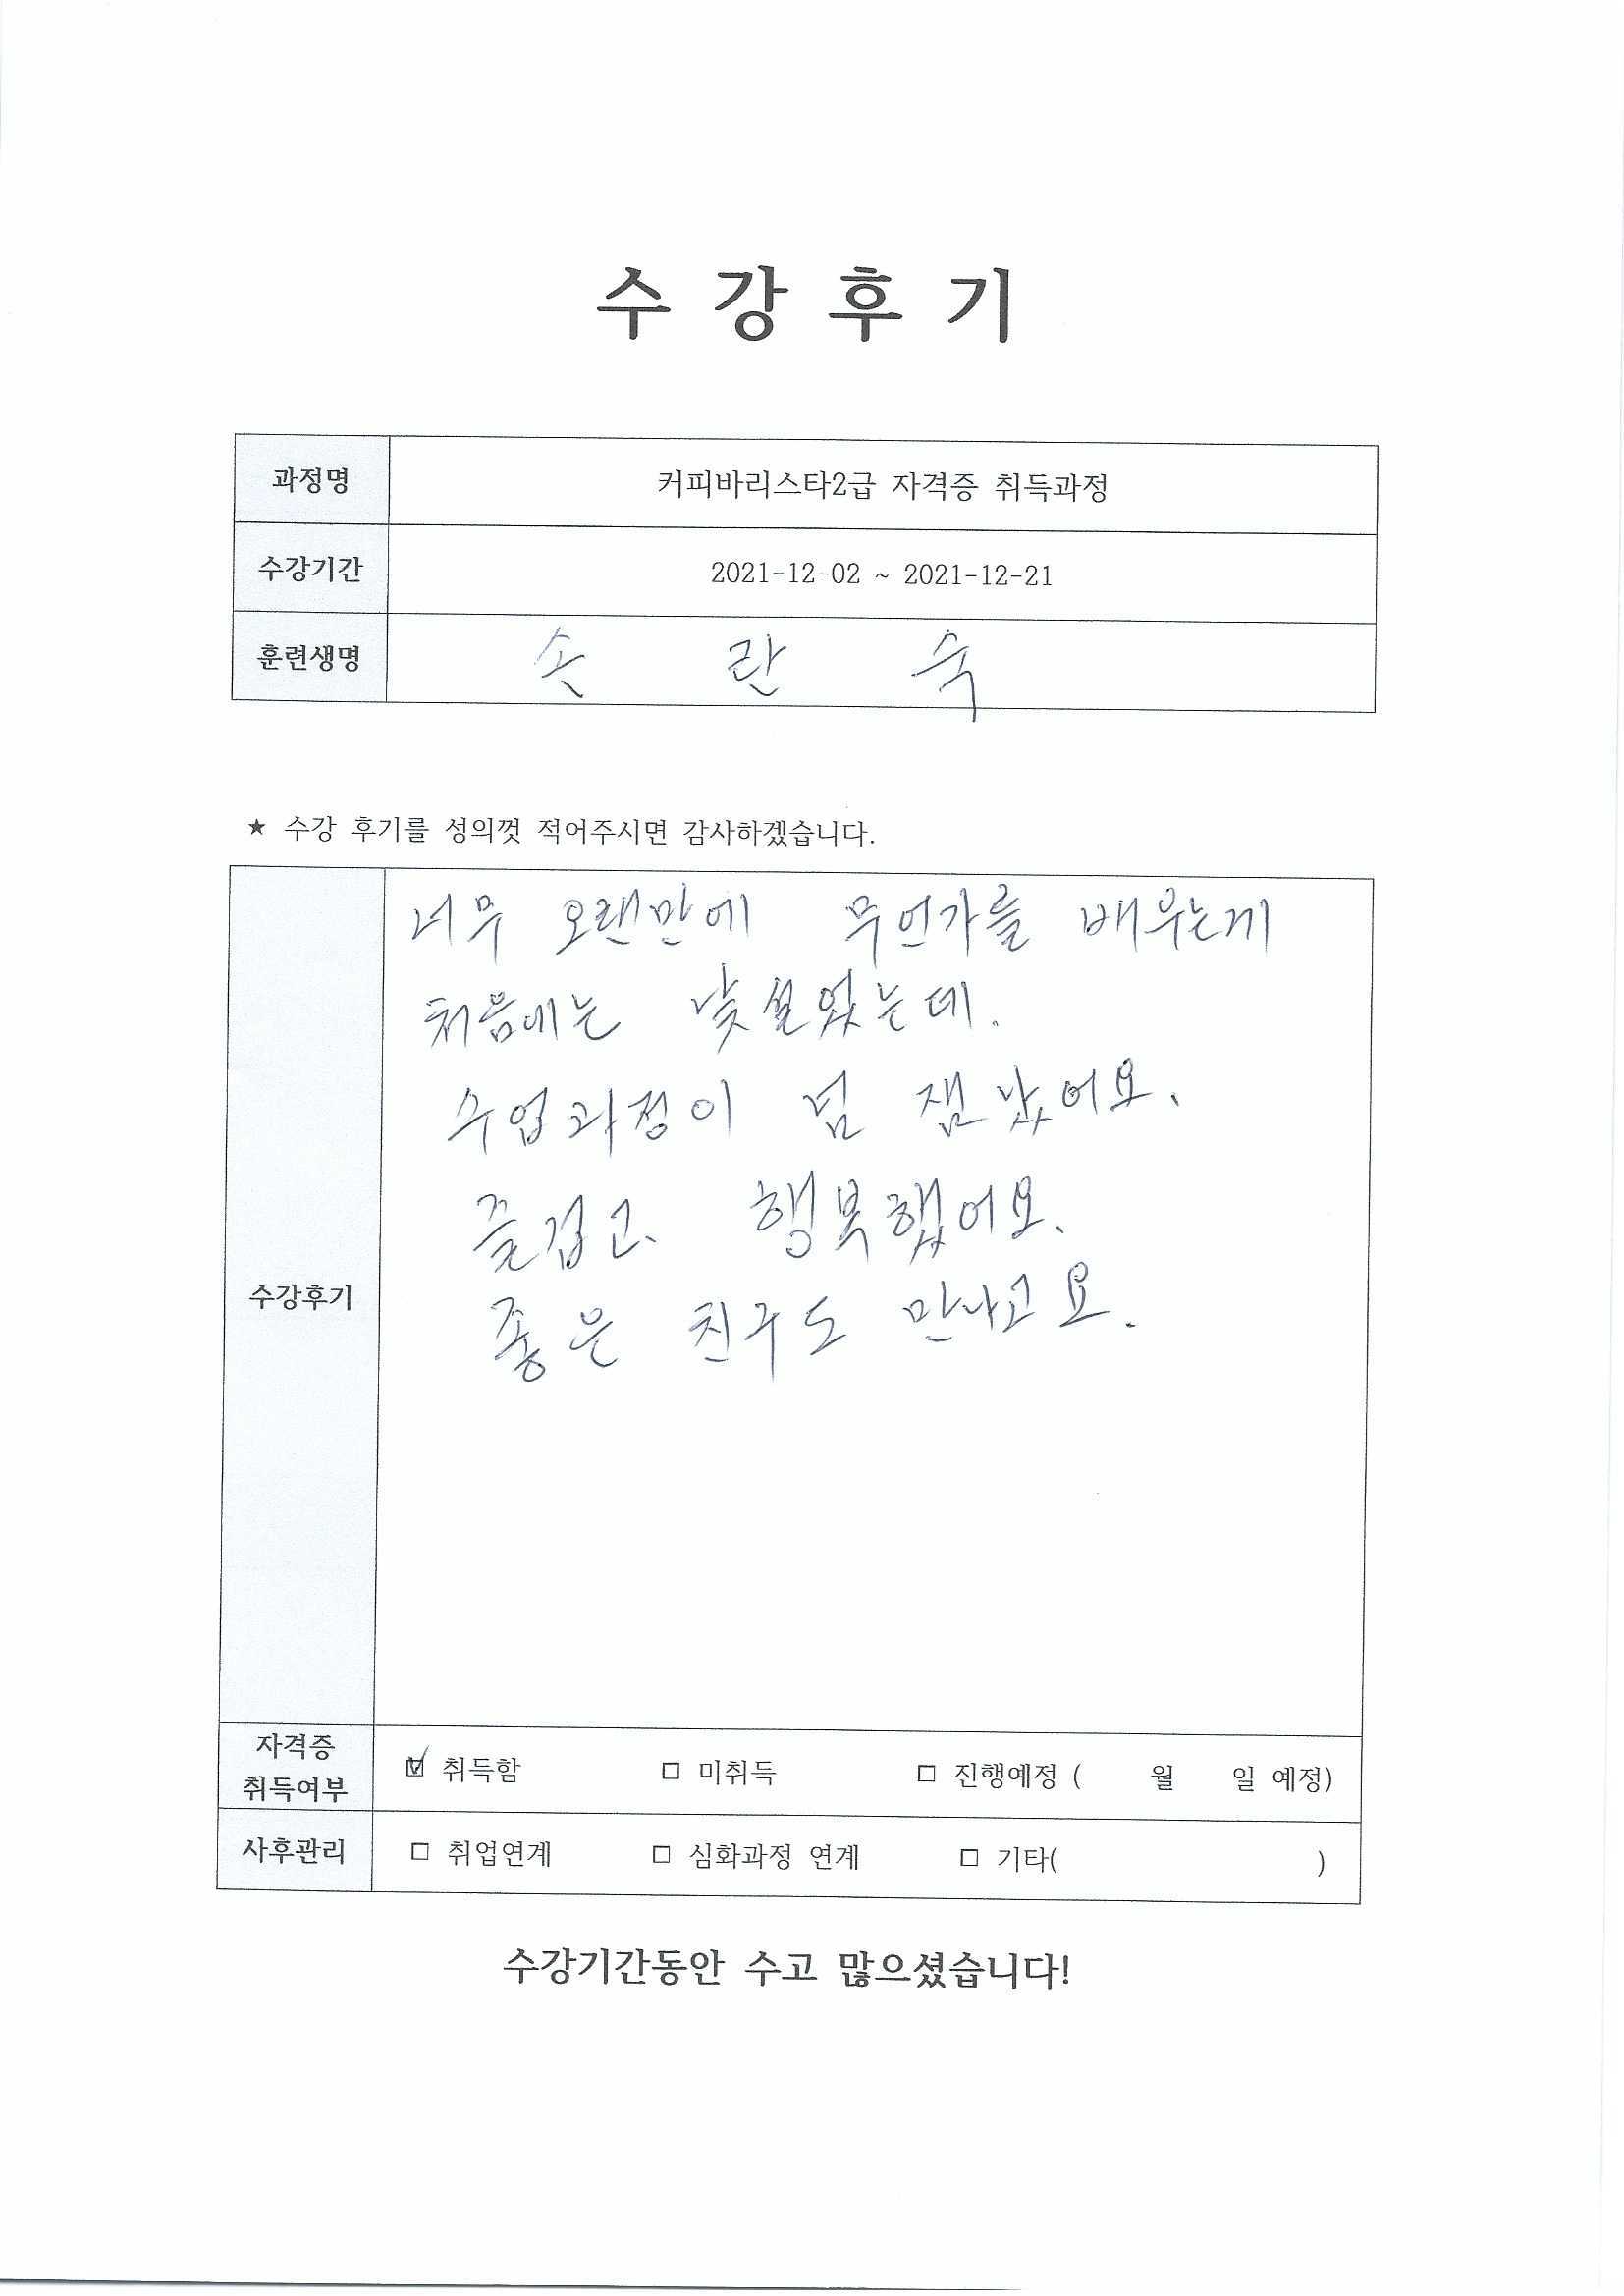 수 강 후 기
과정명 커피바리스타2급 자격증 취득과정
수강기간 2021-12-02 ~ 2021-12-21
훈련생명 손 란 숙
★ 수강 후기를 성의껏 적어주시면 감사하겠습니다.
너무 오랜만에 무언가를 배우는게
처음에는 낯설었는데.
수업과정이 넘 잼났어요.
수강후기
즐겁고 행복했어요.
좋은 친구도 만나고요.
자격증
취득여부
☑ 취득함 □ 미취득 □ 진행예정 ( 월 일 예정)
사후관리 □ 취업연계 □ 심화과정 연계 □ 기타( )
수강기간동안 수고 많으셨습니다!